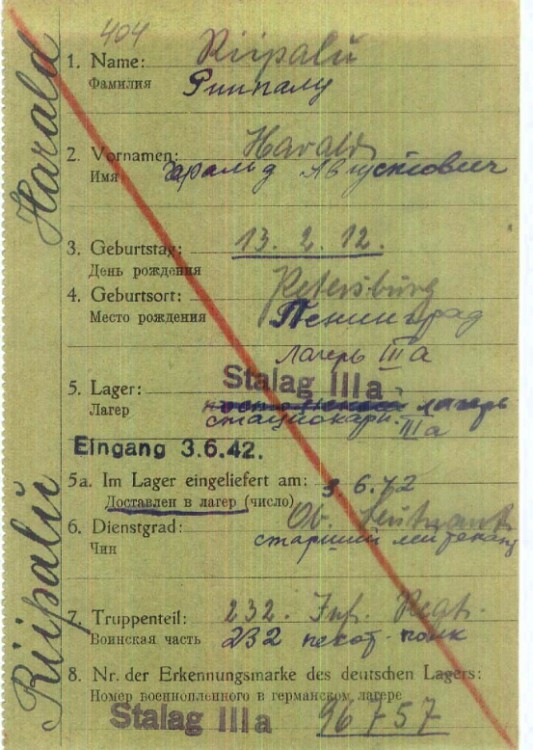 404
Riipalu Harald
1. Name: Riipalu
Фамилия Риипалу
2. Vornamen: Harald
Имя Харальд Августович
3. Geburtstag: 13. 2. 12.
День рождения
4. Geburtsort: Petersburg
Место рождения Ленинград
лагерь III a
5. Lager: Stalag III a
Лагерь лагерь
стационарн. III a
Eingang 3.6.42.
5a. Im Lager eingeliefert am: 3. 6. 42
Доставлен в лагерь (число)
6. Dienstgrad: Ob. Leutnant
Чин старший лейтенант
7. Truppenteil: 232. Inf. Regt.
Воинская часть 232 пехот. полк
8. Nr. der Erkennungsmarke des deutschen Lagers:
Номер военнопленного в германском лагере
Stalag III a 96757